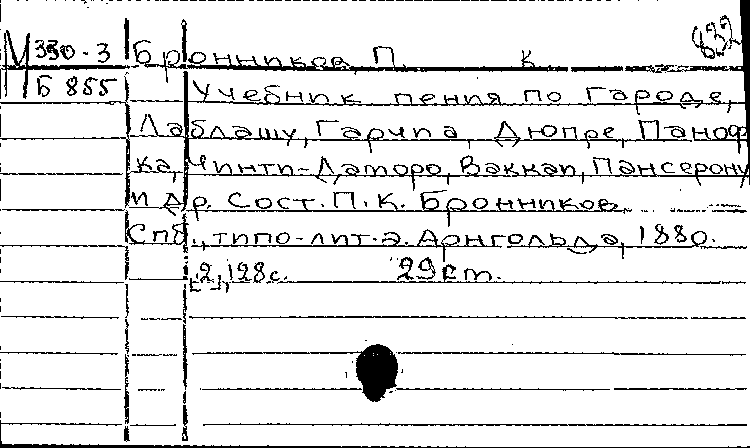 М 350-3 Бронников, П. К. 632
Б 855 Учебник пения по Гароде,
Лаблашу, Гарчиа, Дюпре, Паноф
ка, Чинти-Даморо, Ваккаи, Пансерону
и др. Сост. П.К. Бронников.
Спб., типо-лит. Э. Арнгольда, 1880.
[2], 128 с. 29 см.